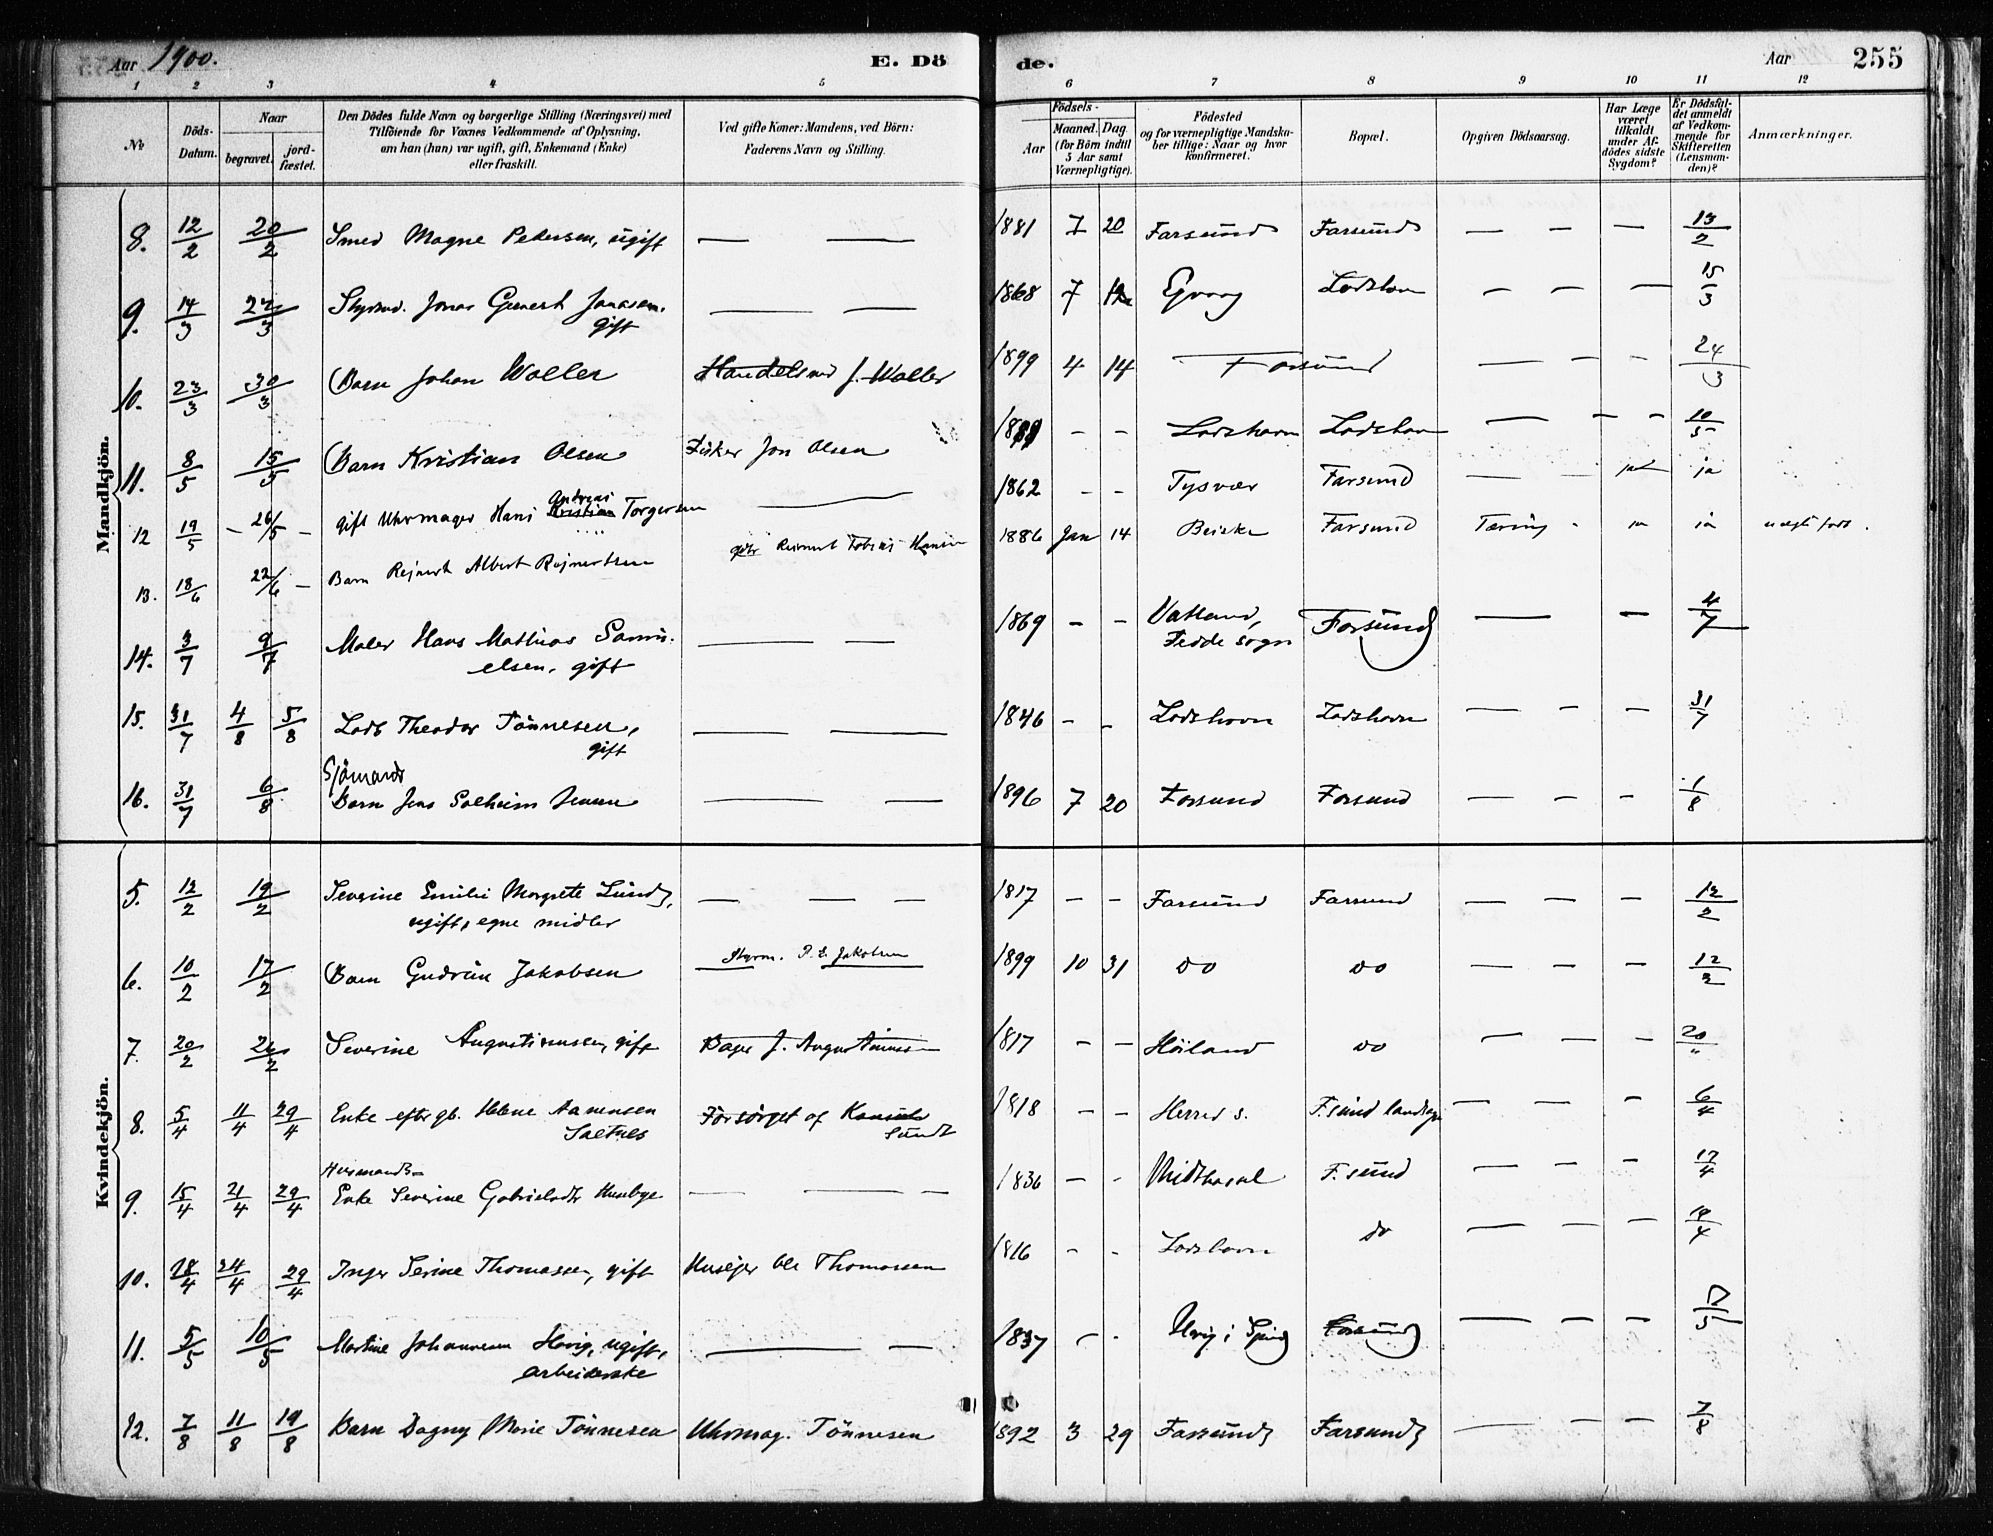 Aar 1900.
E. Dö
de.
Aar
255
1 2 3 4 5 6 7 8 9 10 11 12
No
Döds-Datum.
Naar
begravet.
jord-fæstet.
Den Dödes fulde Navn og borgerlige Stilling (Næringsvei) med
Tilföiende for Voxnes Vedkommende af Oplysning,
om han (hun) var ugift, gift, Enkemand (Enke)
eller fraskilt.
Ved gifte Koner: Mandens, ved Börn:
Faderens Navn og Stilling.
Födsels-
Aar
Maaned. Dag
(for Börn indtil
5 Aar samt
Værnepligtige).
Födested
og for værnepligtige Mandska-
ber tillige: Naar og hvor
konfirmeret.
Bopæl.
Opgiven Dödsaarsag.
Har Læge
været
tilkaldt
under Af-
dödes sidste
Sygdom?
Er Dödsfal-
det anmeldt
af Vedkom-
mende for
Skifteretten
(Lensman-
den)?
Anmærkninger.
Mandkjön.
8. 12/2 20/2 Smed Magne Pedersen, ugift — — 1881 7 20 Farsund Farsund — — — 13/2
9. 14/3 Jonas Jonassen. — — 1868 7 — — — 15/3
gift
10. 23/3 30/3 Barn Johan Waller Handelsmd J. Waller 1899 4 14 Farsund — — — 24/3
11. 8/5 15/5 Barn Kristian Olsen Fisker Jon Olsen — — Lodshavn Lodshavn — — — 10/5
Andreas
12 19/5 — 26/5 — gift Uhrmager Hans Kristian Torgersen — 1862 - - Tysvær Farsund — — ja
13. 18/6 22/6 — Barn Rejnert Albert Rejnertsen Tobias 1886 Jan 14 Farsund Tæring - ja ja
14. 3/7 9/7 Maler Hans Mathias Samu- — — 1869 - - Vatland, Farsund — — 4/7
elsen, gift Fedde sogn
15. 31/7 4/8 5/8 Lods Theodor Tönnesen, — — 1846 - - Lodshavn Lodshavn — — — 31/7
gift
Sjömands
16. 31/7 6/8 Barn Jens Solheim Jensen — — 1896 7 20 Farsund Farsund — — — 1/8
Kvindekjön.
5. 12/2 19/2 Severine Emilie Margrete Lund, — — — 1817 - - Farsund Farsund — — — 12/2
ugift, egne midler
6. 10/2 17/2 Barn Gudrun Jakobsen Styrm. P. E. Jakobsen 1899 10 31 do do — — — 12/2
7. 20/2 26/2 Severine Augustinussen, gift Bager J. Augustinussen 1817 - - Höiland do — — — 20/"
8. 5/4 11/4 29/4 Enke efter gb. Helene Aanensen Forsörget af Konsul 1818 - - Herred s. F.sund landsogn — — — 6/4
Saltnes Sundt
Husmands-
9. 15/4 21/4 29/4 Enke Severine Gabrielsdtr Husebye — — — 1836 - - Midthasal F.sund — — — 17/4
10. 18/4 24/4 29/4 Inger Serine Thomassen, gift Husejer Ole Thomassen 1816 - - Lodshavn do — — — 19/4
11. 5/5 10/5 Martine Johannesen Hervig, ugift, — — 1837 - - i Spind Farsund — — —
arbeiderske
12. 7/8 11/8 19/8 Barn Dagny Marie Tönnesen Uhrmag. Tönnesen 1892 3 29 Farsund Farsund — — — 7/8